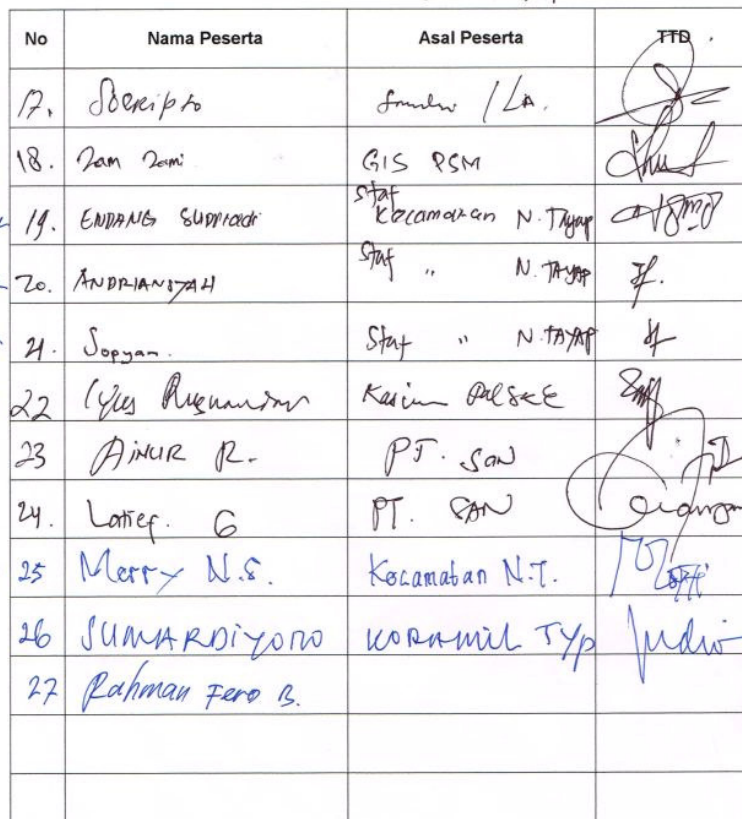 No Nama Peserta Asal Peserta TTD
17. Soeripto / LA.
18. Zam Zami GIS PSM
19. ENDANG SUPRIADI Staf Kecamatan N. Tayap
20. ANDRIANSYAH Staf " N. TAYAP
21. Sopyan. Staf " N. TAYAP
22
23 AINUR R. PT. SAN
24. Latief. G PT. SAN
25 Merry N.S. Kecamatan N.T.
26 SUMARDIYONO KORAMIL TYP
27 Rahman Fero B.